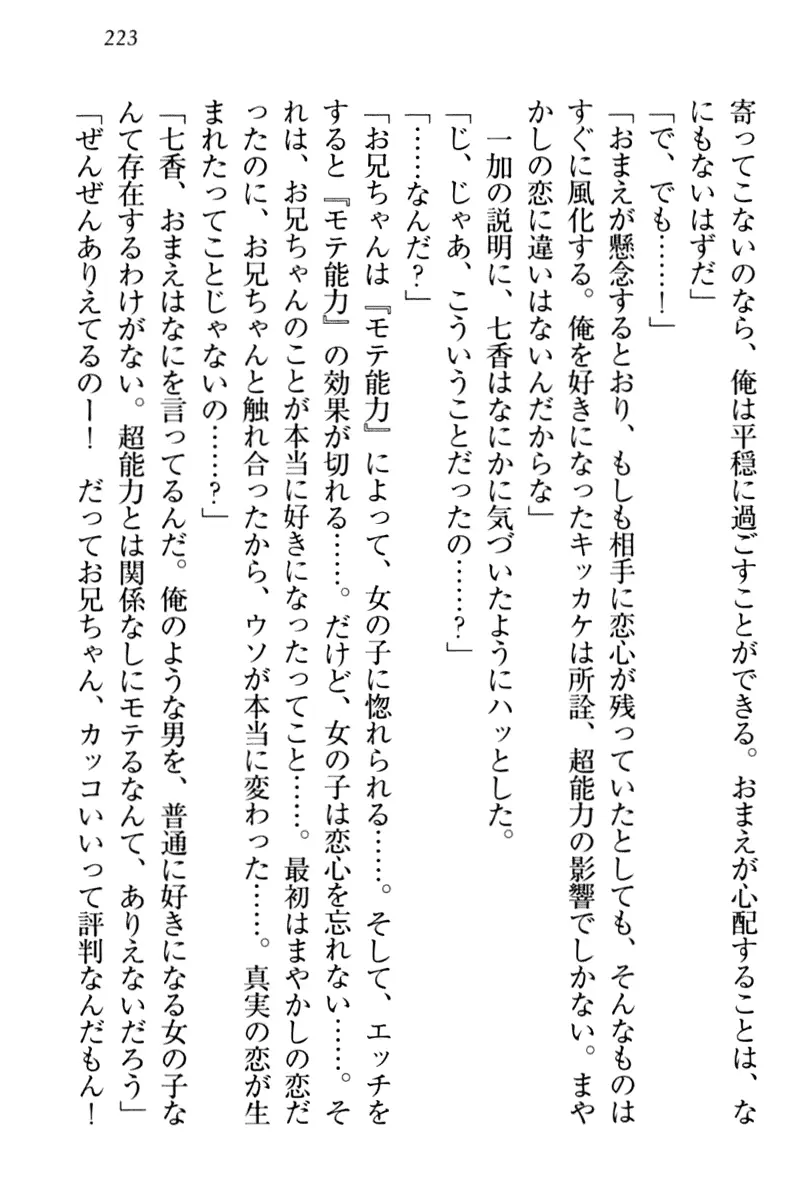 223
寄ってこないのなら、俺は平穏に過ごすことができる。おまえが心配することは、な
にもないはずだ」
「で、でも……！」
「おまえが懸念するとおり、もしも相手に恋心が残っていたとしても、そんなものは
すぐに風化する。俺を好きになったキッカケは所詮、超能力の影響でしかない。まや
かしの恋に違いはないんだからな」
　一加の説明に、七香はなにかに気づいたようにハッとした。
「じ、じゃあ、こういうことだったの……？」
「……なんだ？」
「お兄ちゃんは『モテ能力』によって、女の子に惚れられる……。そして、エッチを
すると『モテ能力』の効果が切れる……。だけど、女の子は恋心を忘れない……。そ
れは、お兄ちゃんのことが本当に好きになったってこと……。最初はまやかしの恋だ
ったのに、お兄ちゃんと触れ合ったから、ウソが本当に変わった……。真実の恋が生
まれたってことじゃないの……？」
「七香、おまえはなにを言ってるんだ。俺のような男を、普通に好きになる女の子な
んて存在するわけがない。超能力とは関係なしにモテるなんて、ありえないだろう」
「ぜんぜんありえてるのー！　だってお兄ちゃん、カッコいいって評判なんだもん！